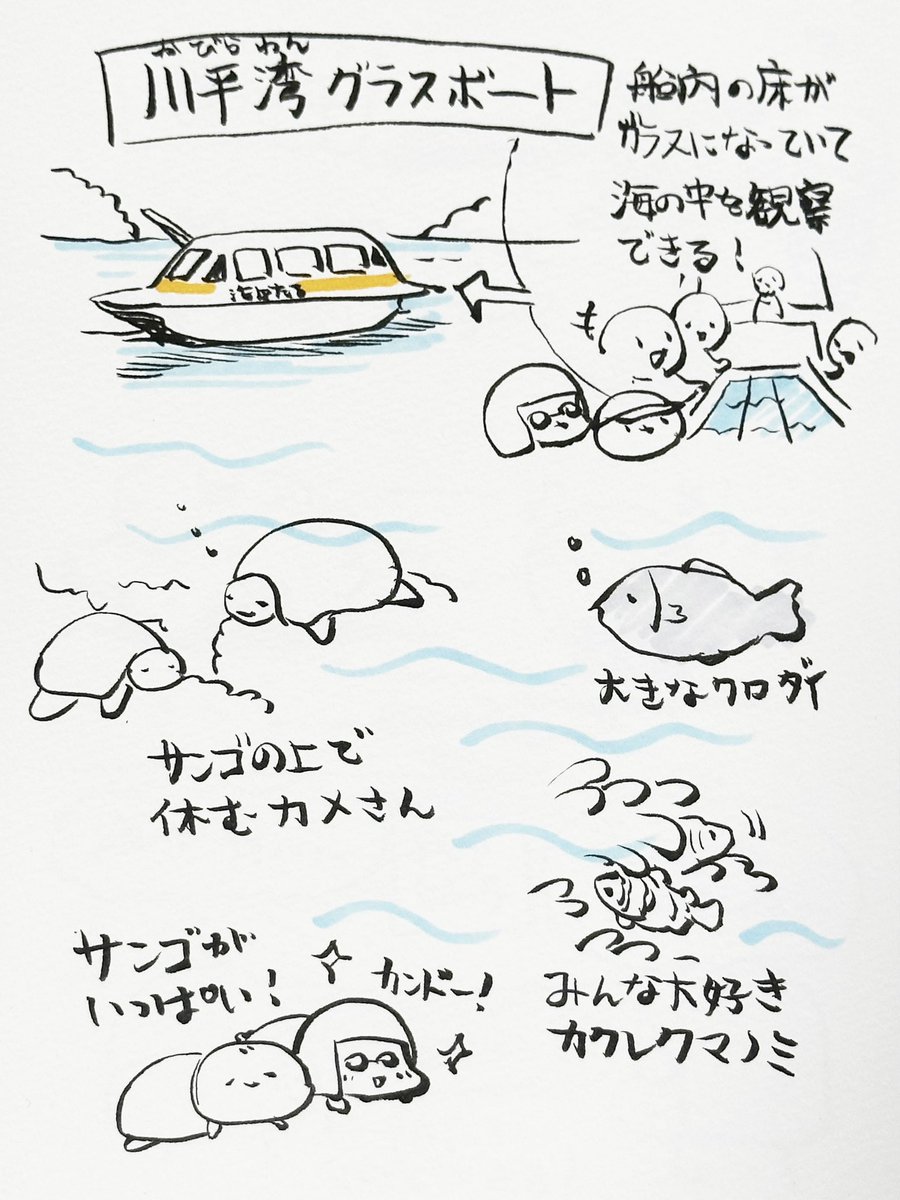 かびらわん
川平湾グラスボート
船内の床が
ガラスになっていて
海の中を観察
できる!
大きなクロダイ
サンゴの上で
休むカメさん
サンゴが
いっぱい!
カンドー!
みんな大好き
カクレクマノミ